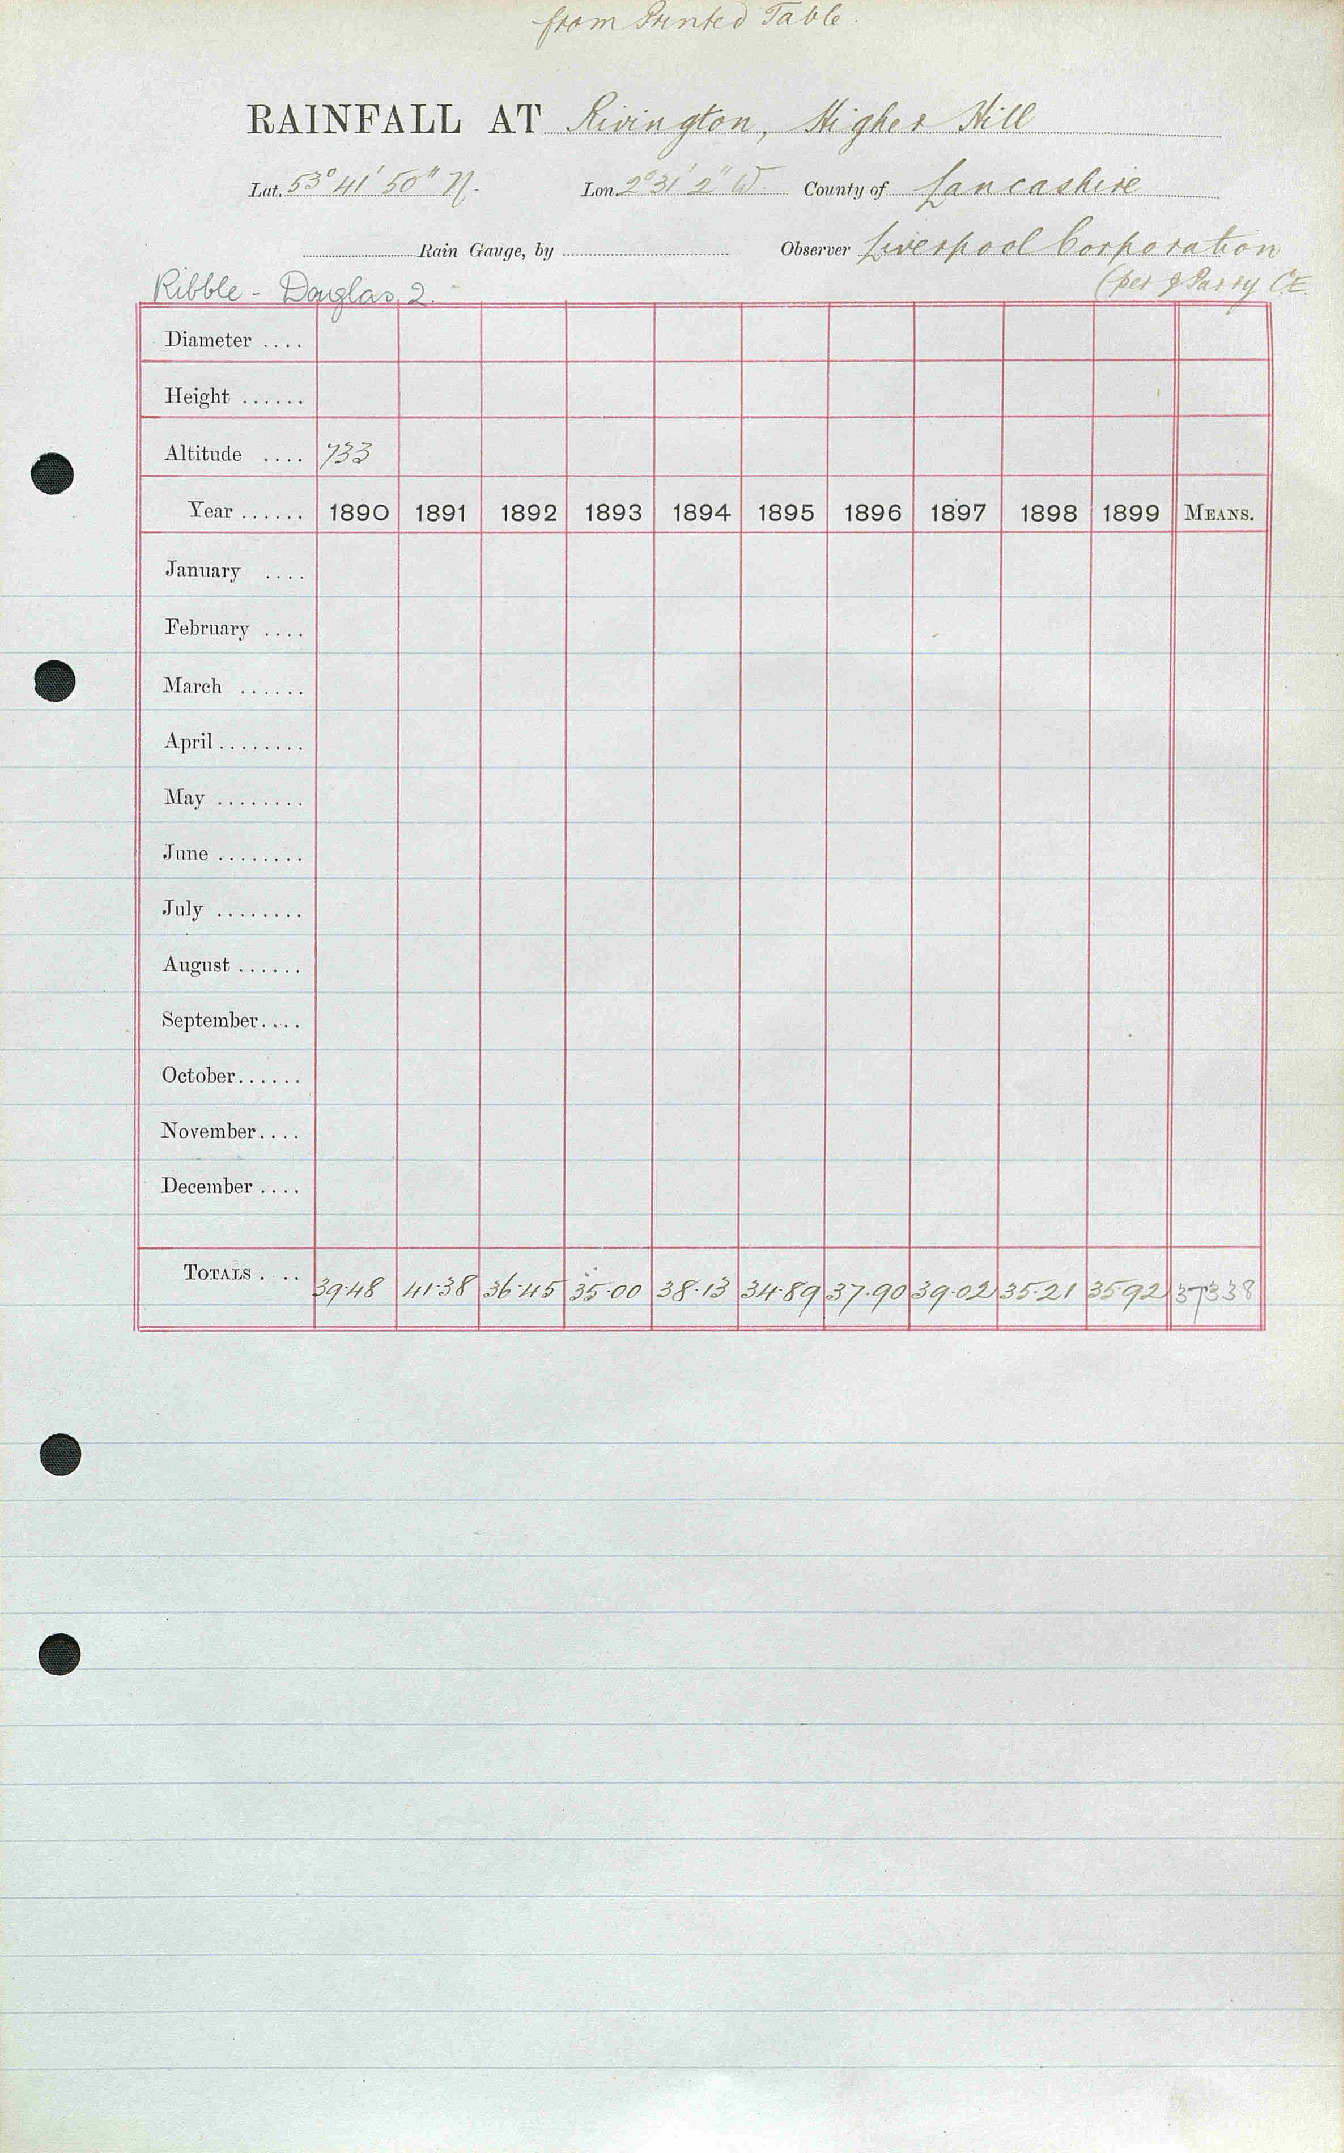 from Printed Table.
RAINFALL AT Rivington, Higher Hill
Lat. 53° 41' 50" N. Lon. 2° 31' 2" W. County of Lancashire
Rain Gauge, by Observer Liverpool Corporation
Ribble - Douglas 2. (per J Parry C.E.
Diameter ....
Height ......
Altitude .... 733
Year ...... 1890 1891 1892 1893 1894 1895 1896 1897 1898 1899 MEANS.
January ....
February ....
March ......
April ........
May ........
June ........
July ........
August ......
September ....
October ......
November ....
December ....
TOTALS .... 39.48 41.38 36.45 35.00 38.13 34.89 37.90 39.02 35.21 35.92 37338